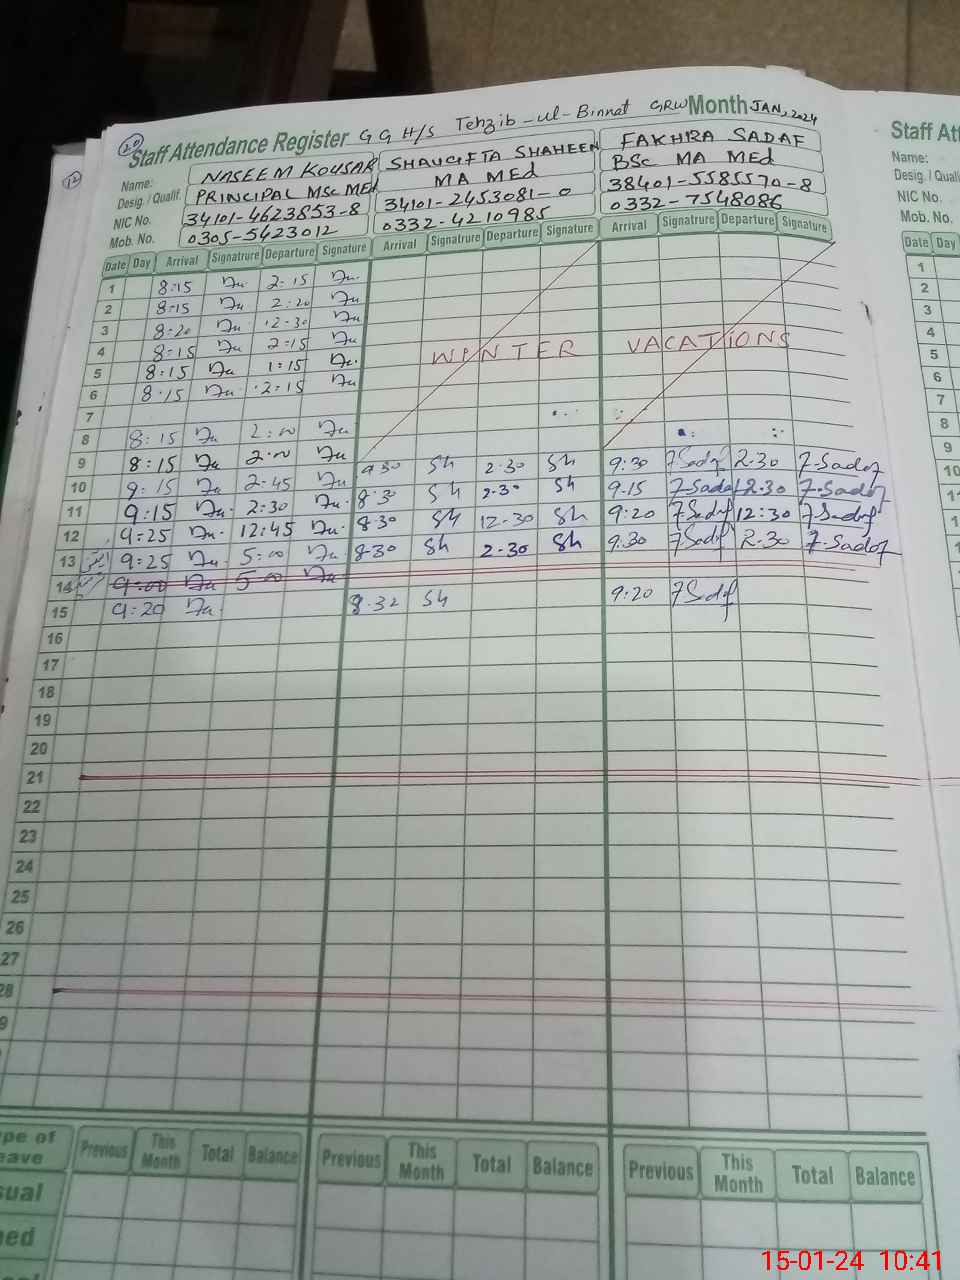 20
Staff Attendance Register G G H/S Tehzib-ul-Binnat GRW Month JAN, 2024
12
Name: NASEEM KOUSAR SHAUGFTA SHAHEEN FAKHRA SADAF
Desig. / Qualif. PRINCIPAL MSc MEd MA MEd BSc MA MEd
NIC No. 34101-4623853-8 34101-2453081-0 38401-5585570-8
Mob. No. 0305-5423012 0332-4210985 0332-7548086
Date Day Arrival Signatrure Departure Signature Arrival Signatrure Departure Signature Arrival Signatrure Departure Signature
1 8:15 2:15
2 8:15 2:20
3 8:20 2-30
4 8:15 2:15
WINTER VACATIONS
5 8:15 1:15
6 8:15 2:15
7
8 8:15 2:00
9 8:15 2:00 9:30 Sh 2-30 Sh 9:30 7Sadaf 2-30 7-Sadaf
10 9:15 2-45 8:30 Sh 2-30 Sh 9-15 7Sadaf 2-30 7-Sadaf
11 9:15 2:30 8-30 Sh 12-30 Sh 9:20 7Sadaf 12:30 7-Sadaf
12 9:25 12:45 8-30 Sh 2-30 Sh 9:30 7Sadaf 2-30 7-Sadaf
13 9:25 5:00
14 9:00 5:00
15 9:20 8:32 Sh 9:20 7Sadaf
16
17
18
19
20
21
22
23
24
25
26
27
28
9
pe of eave Previous This Month Total Balance Previous This Month Total Balance Previous This Month Total Balance
sual
ned
Staff Att
Name:
Desig. / Qualif
NIC No.
Mob. No.
Date Day
1
2
3
4
5
6
7
8
9
10
11
12
13
15-01-24 10:41